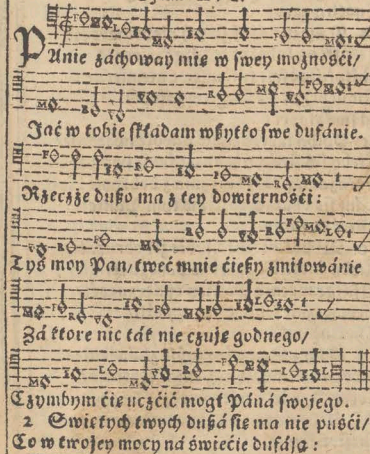 Panie záchoway mię w swey możnośći/
Jać w tobie składam wszytko swe dufánie.
Rzeczże duszo ma z tey dowiernośći:
Tyś moy Pan/ tweć mnie ćieszy zmiłowánie
Zá ktore nic ták nie czuję godnego/
Czymbym ćię uczćić mogł Páná swojego.
2 Swiętych twych duszá się ma nie puśći/
Co w twojey mocy ná świećie dufáją: